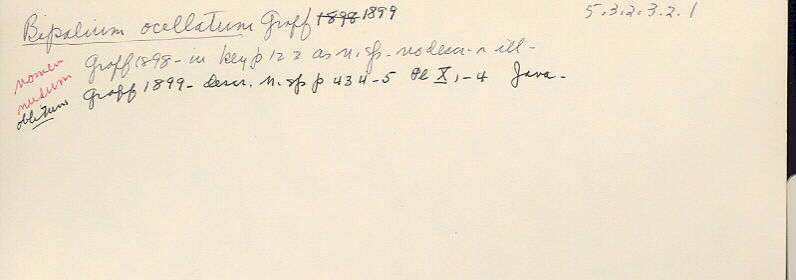 Bipalium ocellatum Graff 1898 1899
5.3.2.3.2.1
nomen
nudum
oblitum
Graff 1898 - in key p 122 as n. sp. - no descr. n ill -
Graff 1899 - descr. n. sp p 434-5 Pl X, 1-4 Java -